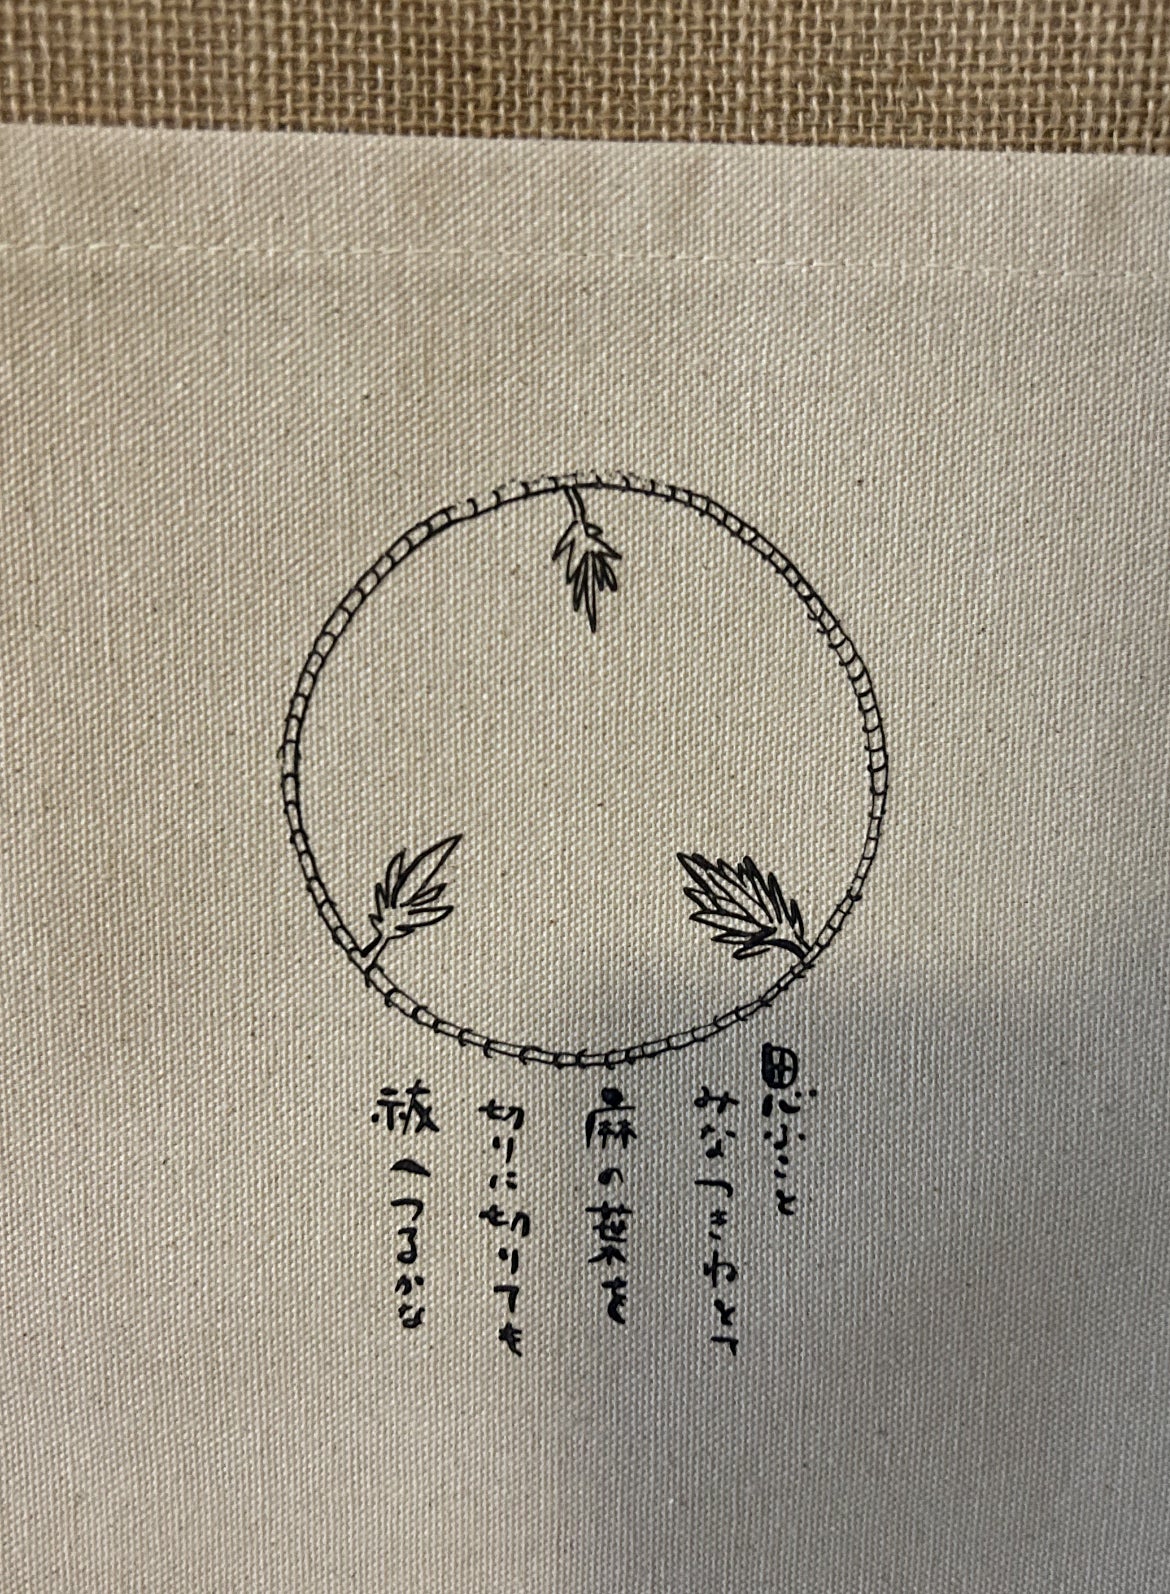 思ふこと
みなつきねとて
麻の葉を
切りに切りても
祓へつるかな